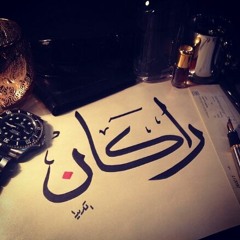 راكان